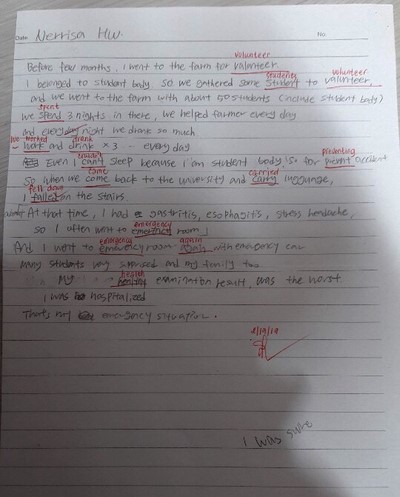 Date Nerrisa HW No
volunteer
Before few months, I went to the farm for valunteer.
students volunteer
I belonged to student body so we gathered some student to valunteer,
and we went to the farm with about 50 students (include student body)
spent
We spend 3 nights in there, we helped farmer every day
and everyday night we drank so much
We worked drank
- work and drink × 3 - every day
couldn't preventing
Even I can't sleep because i am student body is for prevent accident
came carried
So when we come back to the university and carry luggage,
fell down
I falled on the stairs
At that time, I had gastritis, esophagitis, stress headache,
emergency
so I often went to emergency room
emergency again
And I went to emergency room again with emergency car
Many students very suprised and my family too
health
My healthy examination result, was the worst
I was hospitalized
That's my emergency situation.
I was